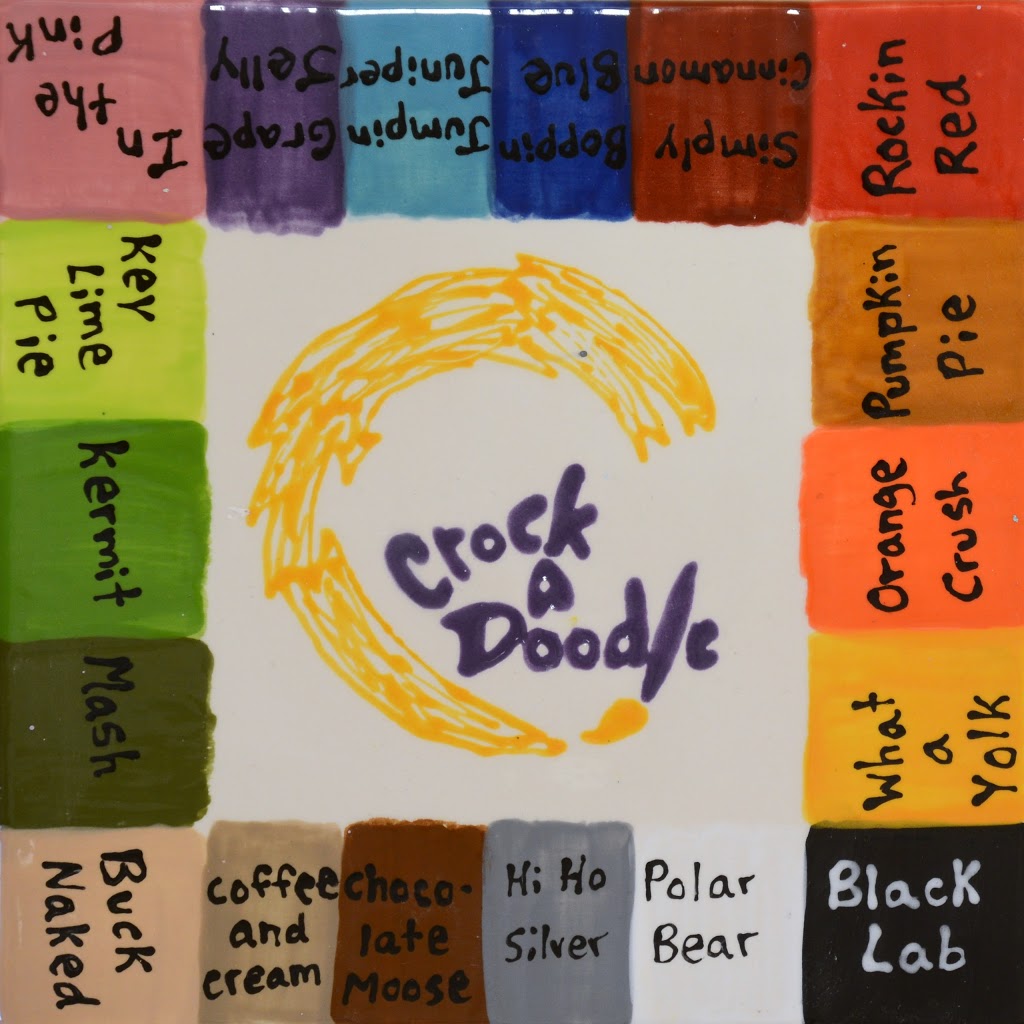 In
the
Pink
Grape
Jelly
Jumpin
Juniper
Boppin
Blue
Simply
Cinnamon
Rockin
Red
Key
Lime
Pie
Pumpkin
Pie
Kermit
Orange
Crush
Crock
A
Doodle
Mash
What
a
Yolk
Buck
Naked
coffee
and
cream
choco-
late
Moose
Hi Ho
Silver
Polar
Bear
Black
Lab